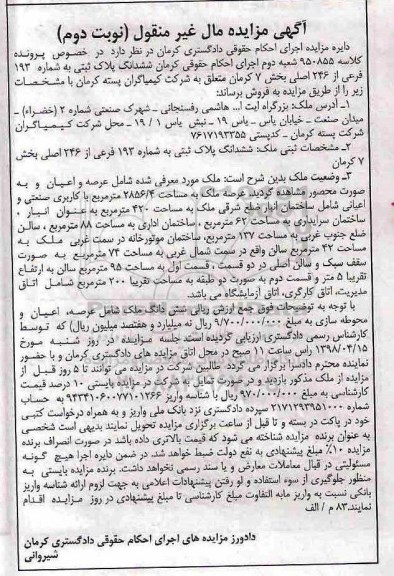 آگهی مزایده مال غیر منقول (نوبت دوم)
دایره مزایده اجرای احکام حقوقی دادگستری کرمان در نظر دارد در خصوص پرونده
کلاسه ۹۵۰۸۵۵ شعبه دوم اجرای احکام حقوقی کرمان ششدانگ پلاک ثبتی به شماره ۱۹۳
فرعی از ۲۴۶ اصلی بخش ۷ کرمان متعلق به شرکت کیمیاگران پسته کرمان با مشخصات
زیر را از طریق مزایده به فروش برساند:
۱ـ آدرس ملک: بزرگراه آیت ا... هاشمی رفسنجانی ـ شهرک صنعتی شماره ۲ (خضراء) ـ
میدان صنعت ـ خیابان یاس ـ یاس ۱۹ ـ نبش یاس ۱ / ۱۹ ـ محل شرکت کیمیاگران
شرکت پسته کرمان ـ کدپستی ۷۶۱۷۱۹۳۳۵۵
۲ـ مشخصات ثبتی ملک: ششدانگ پلاک ثبتی به شماره ۱۹۳ فرعی از ۲۴۶ اصلی بخش
۷ کرمان
۳ـ وضعیت ملک بدین شرح است: ملک مورد معرفی شده شامل عرصه و اعیان و به
صورت محصور مشاهده گردید. عرصه ملک به مساحت ۲۸۵۶/۴ مترمربع با کاربری صنعتی و
اعیانی شامل ساختمان انبار ضلع شرقی ملک به مساحت ۴۲۰ مترمربع به عنوان انبار ،
ساختمان سرایداری به مساحت ۶۲ مترمربع ، ساختمان اداری به مساحت ۸۸ مترمربع ، سالن
ضلع جنوب غربی به مساحت ۱۳۷ مترمربع، ساختمان موتورخانه در سمت غربی ملک به
مساحت ۴۲ مترمربع سالن واقع در سمت شمال غربی به مساحت ۷۴ مترمربع به صورت
سقف سبک و سالن اصلی در دو قسمت ، قسمت اول به مساحت ۹۵ مترمربع سالن به ارتفاع
تقریبا ۵ متر و قسمت دوم به صورت دو طبقه به مساحت تقریبا ۲۰۰ مترمربع شامل اتاق
مدیریت، اتاق کارگری، اتاق آزمایشگاه می باشد.
با توجه به توضیحات فوق جمع ارزش ریالی شش دانگ ملک شامل عرصه، اعیان و
محوطه سازی به مبلغ ۹/۷۰۰/۰۰۰/۰۰۰ ریال نه میلیارد و هفتصد میلیون ریال) که توسط
کارشناس رسمی دادگستری ارزیابی گردیده است. جلسه مزایده در روز شنبه مورخ
۱۳۹۸/۰۴/۱۵ راس ساعت ۱۱ صبح در محل اتاق مزایده های دادگستری کرمان و با حضور
نماینده محترم دادسرا برگزار می گردد طالبین شرکت در مزایده می توانند تا ۵ روز قبل از
مزایده از ملک مذکور بازدید و در صورت تمایل به شرکت در مزایده بایستی ۱۰ درصد قیمت
کارشناسی به مبلغ ۹۷۰/۰۰۰/۰۰۰ ریال با شناسه واریز ۹۴۳۴۱۰۶۰۰۷۷۱۰۱۲۶۶ به حساب
شماره ۲۱۷۱۲۹۳۹۵۱۰۰۰ سپرده دادگستری نزد بانک ملی واریز و به همراه درخواست کتبی
خود در پاکت در بسته و تا قبل از ساعت برگزاری مزایده تحویل نمایند بدیهی است شخصی
به عنوان برنده مزایده شناخته می شود که قیمت بالاتری داده باشد در صورت انصراف برنده
مزایده ۱۰٪ مبلغ پیشنهادی به نفع دولت ضبط خواهد شد. در ضمن دایره اجرا هیچ گونه
مسئولیتی در قبال معاملات معارض و یا سند رسمی نخواهد داشت. برنده مزایده بایستی به
منظور جلوگیری از سوء استفاده و لو رفتن پیشنهادات اعلامی به جهت لزوم ارائه شناسه واریز
بانکی نسبت به واریز مابه التفاوت مبلغ کارشناسی تا مبلغ پیشنهادی در روز مزایده اقدام
نمایند.۸۳ م / الف
دادورز مزایده های اجرای احکام حقوقی دادگستری کرمان
شیروانی